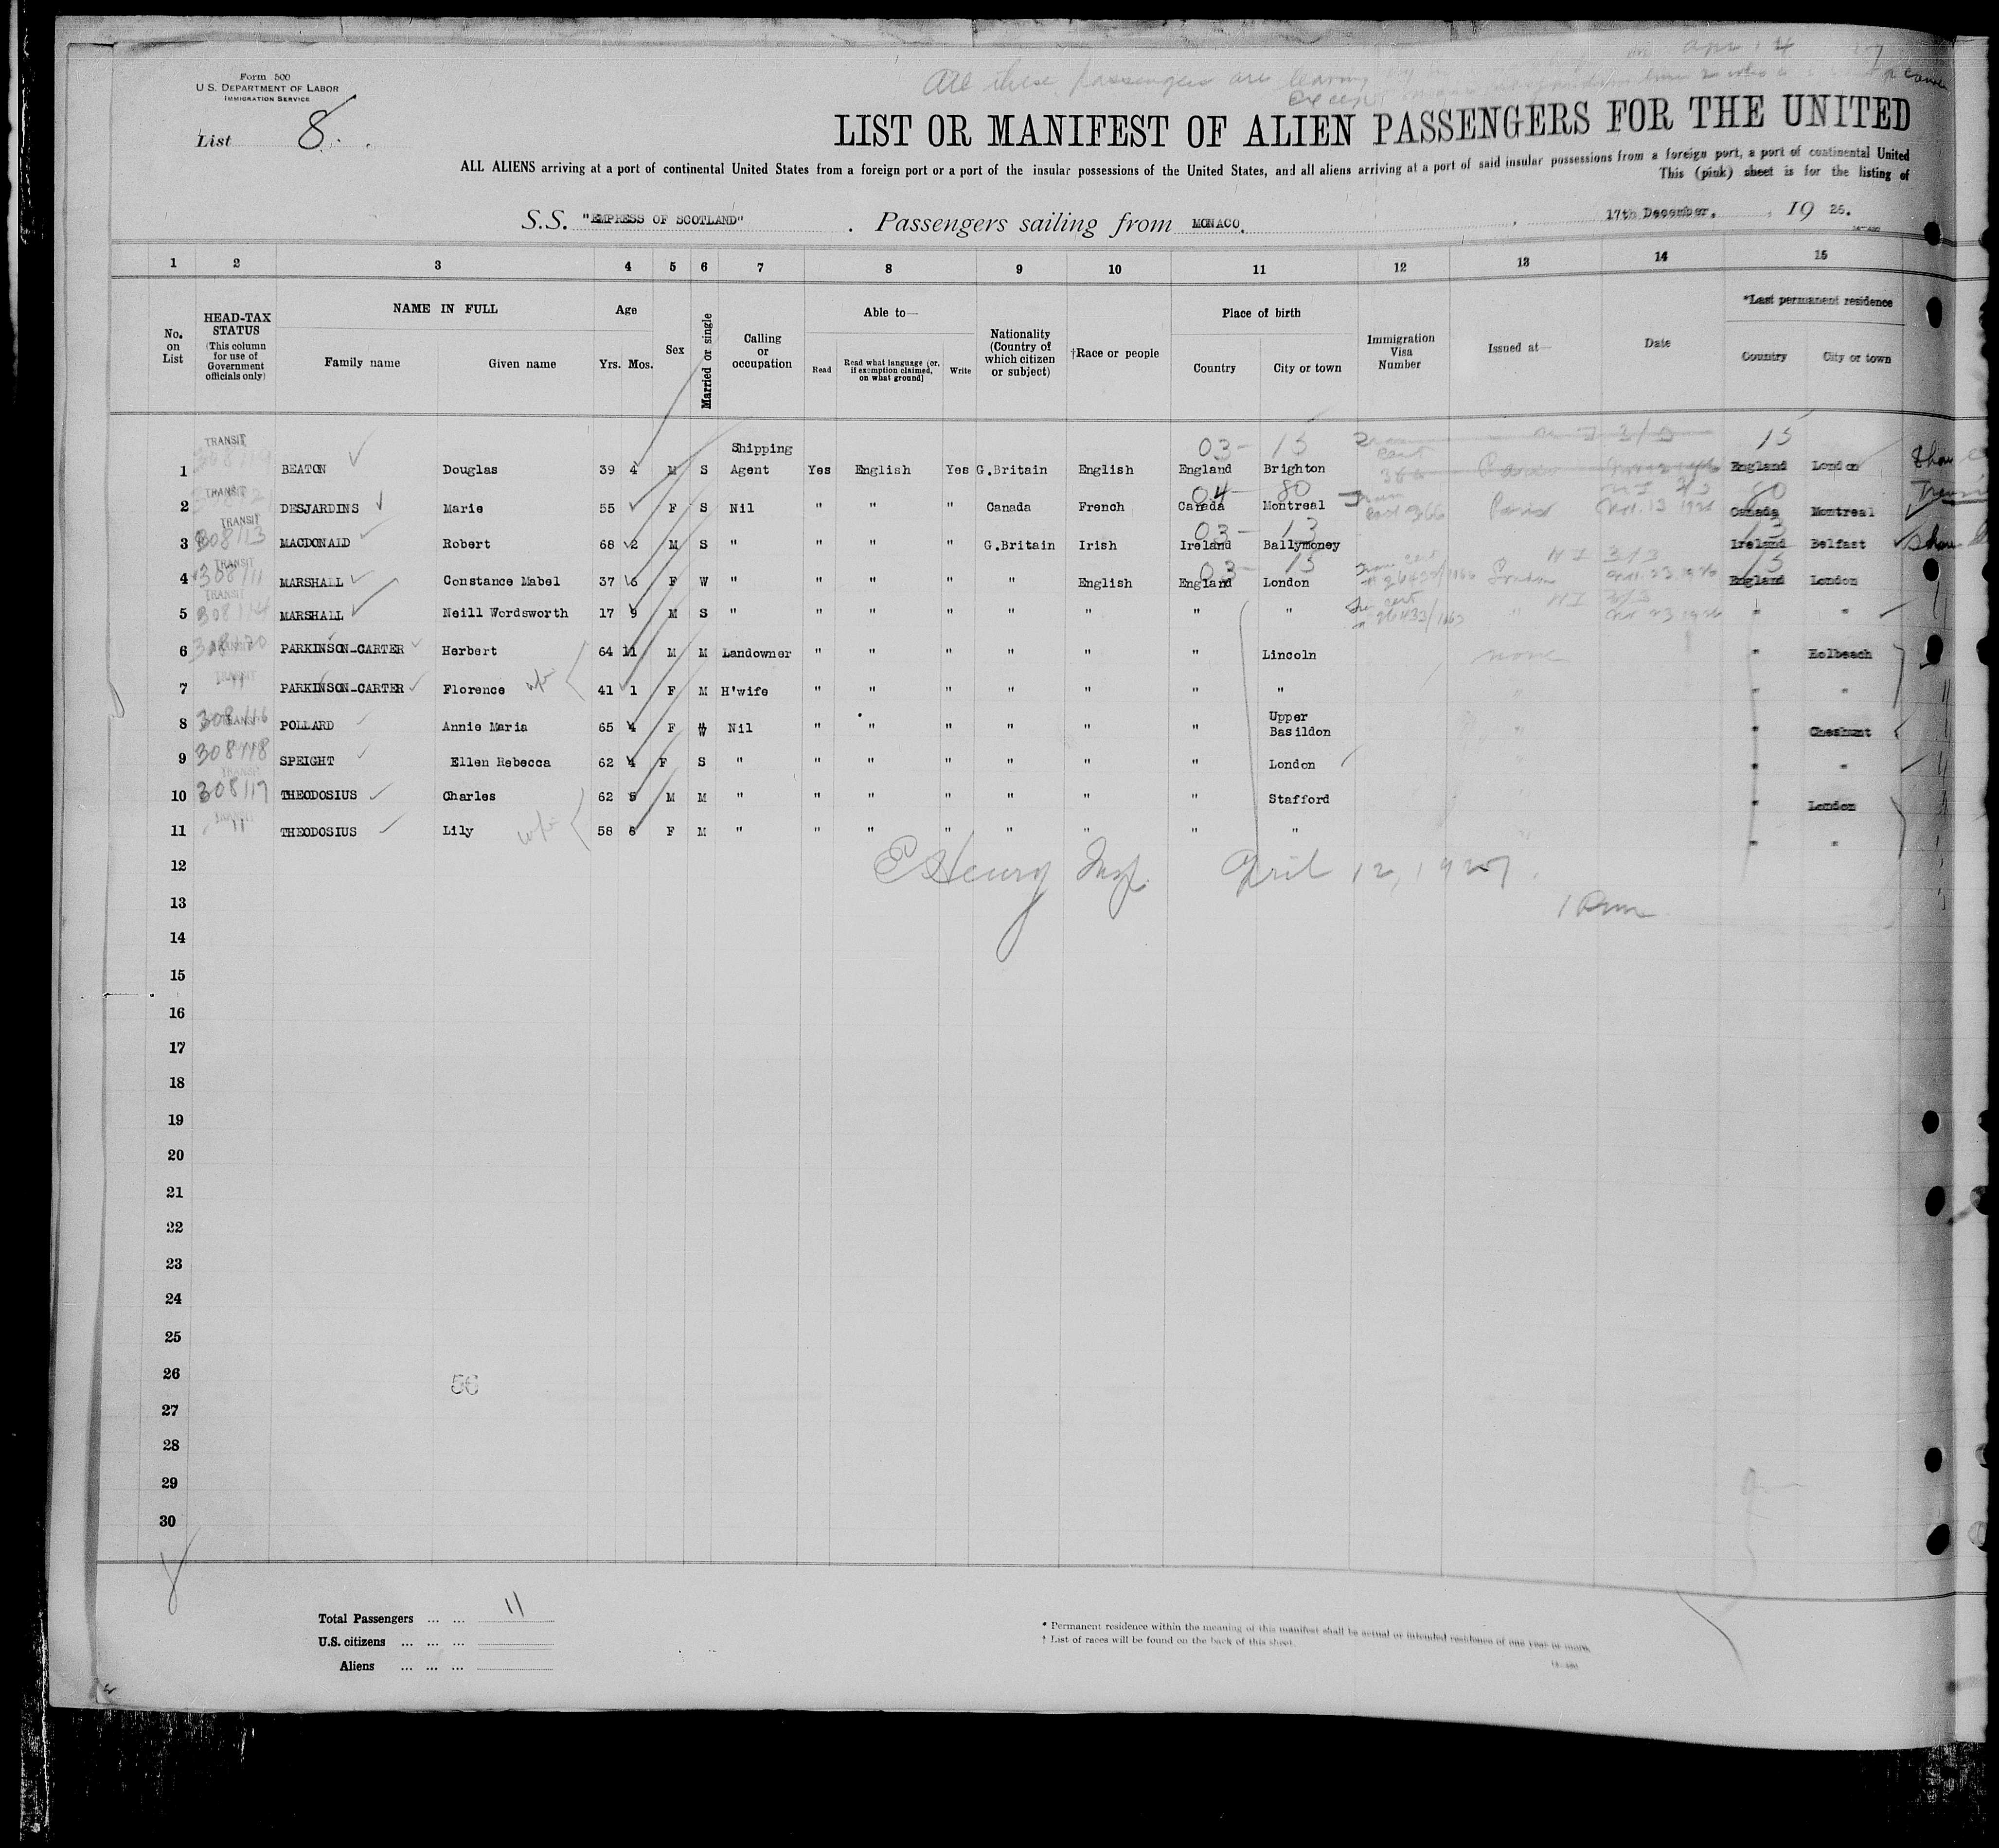 Form 500
U. S. DEPARTMENT OF LABOR
IMMIGRATION SERVICE
All these passengers are leaving
except
List 8.
LIST OR MANIFEST OF ALIEN PASSENGERS FOR THE UNITED
ALL ALIENS arriving at a port of continental United States from a foreign port or a port of the insular possessions of the United States, and all aliens arriving at a port of said insular possessions from a foreign port, a port of continental United
This (pink) sheet is for the listing of
S.S. "EMPRESS OF SCOTLAND" . Passengers sailing from MONACO. 17th December. , 19 26.
1 2 3 4 5 6 7 8 9 10 11 12 13 14 15
No. on List HEAD-TAX STATUS (This column for use of Government officials only) NAME IN FULL Family name Given name Age Yrs. Mos. Sex Married or single Calling or occupation Able to— Read Read what language [or, if exemption claimed, on what ground] Write Nationality (Country of which citizen or subject) †Race or people Place of birth Country City or town Immigration Visa Number Issued at— Date *Last permanent residence Country City or town
03- 15 15
1 TRANSIT BEATON Douglas 39 4 M S Shipping Agent Yes English Yes G.Britain English England Brighton England London
04- 80 80
2 TRANSIT DESJARDINS Marie 55 F S Nil " " " Canada French Canada Montreal 366 Paris Canada Montreal
03- 13 13
3 TRANSIT 308113 MACDONALD Robert 68 2 M S " " " " G.Britain Irish Ireland Ballymoney Ireland Belfast
03- 15 15
4 TRANSIT 308111 MARSHALL Constance Mabel 37 6 F W " " " " " English England London London England London
5 TRANSIT 308114 MARSHALL Neill Wordsworth 17 9 M S " " " " " " " " " " "
6 TRANSIT PARKINSON-CARTER Herbert 64 11 M M Landowner " " " " " " Lincoln none " Holbeach
7 TRANSIT " PARKINSON-CARTER Florence w/f 41 1 F M H'wife " " " " " " " " " "
8 TRANSIT 308116 POLLARD Annie Maria 65 4 F W Nil " " " " " " Upper Basildon " " Cheshunt
9 308118 SPEIGHT Ellen Rebecca 62 4 F S " " " " " " " London " "
10 TRANSIT 308117 THEODOSIUS Charles 62 5 M M " " " " " " " Stafford " London
11 TRANSIT " THEODOSIUS Lily w/f 58 6 F M " " " " " " " " " " "
12 E Henry Insp. April 12, 1927.
13
14
15
16
17
18
19
20
21
22
23
24
25
26
56
27
28
29
30
Total Passengers ... ... 11
U.S. citizens ... ... ...
Aliens ... ... ...
* Permanent residence within the meaning of this manifest shall be actual or intended residence of one year or more.
† List of races will be found on the back of this sheet.